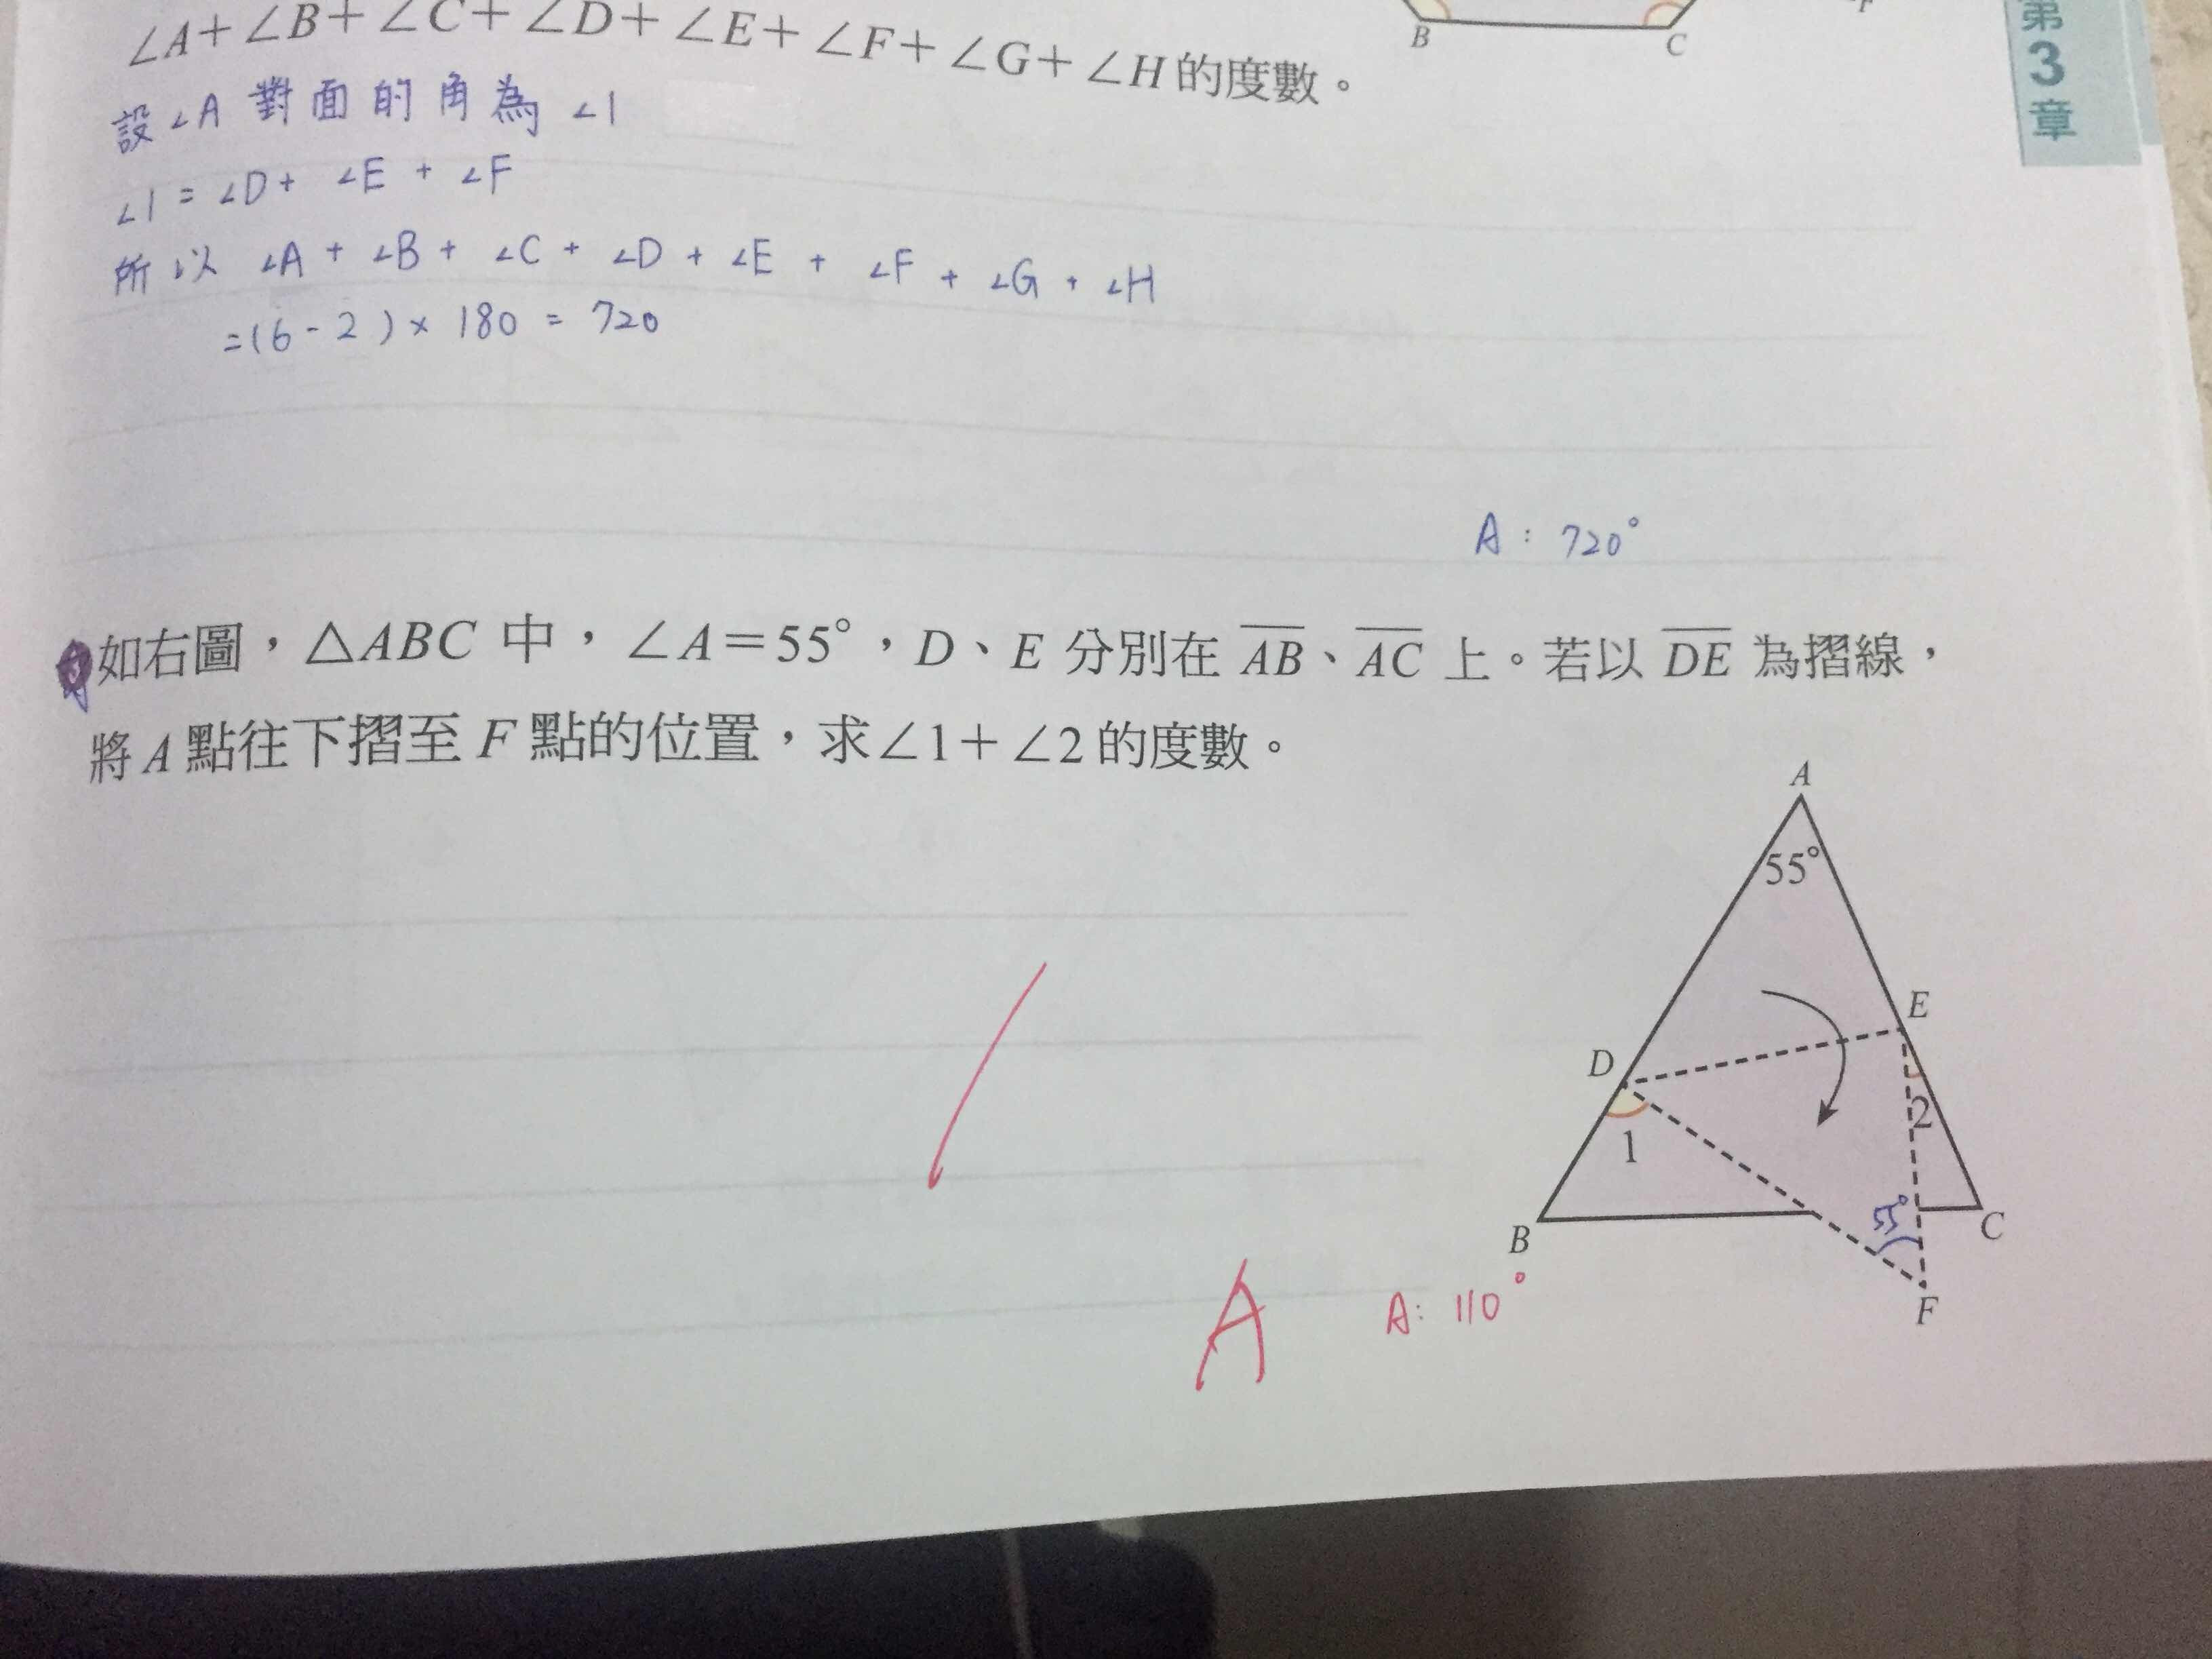 ∠A+∠B+∠C+∠D+∠E+∠F+∠G+∠H的度數。
B
C
F
第3章
設∠A 對面的角為 ∠1
∠1=∠D+ ∠E + ∠F
所以 ∠A + ∠B + ∠C + ∠D + ∠E + ∠F + ∠G + ∠H
=(6-2)× 180 = 720
A : 720°
如右圖，△ABC 中，∠A=55°，D、E 分別在 AB、AC 上。若以 DE 為摺線，
將 A 點往下摺至 F 點的位置，求∠1+∠2的度數。
A
55°
E
D
2
1
55°
B
C
F
A
A: 110°